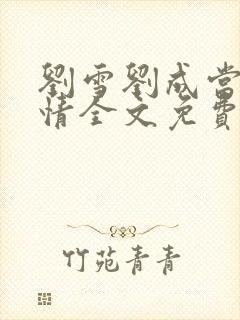 劉雪劉成當
情全文免費
竹苑青青